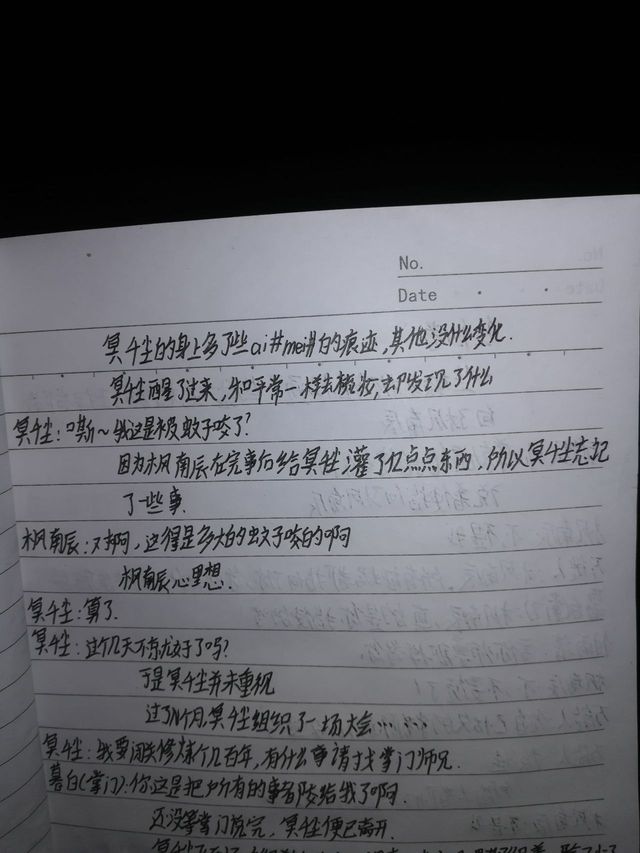 No.
Date
冥千尘的身上多了些ai#mei#的痕迹,其他没什么变化.
冥千尘醒了过来,和平常一样去梳妆,却发现了什么
冥千尘:嘶~我这是被蚊子咬了?
因为枫南辰在完事后给冥千尘灌了亿点点东西,所以冥千尘忘记
了一些事.
枫南辰:对啊,这得是多大的蚊子咬的啊
枫南辰心里想.
冥千尘:算了.
冥千尘:这个几天不有就好了吗?
于是冥千尘并未重视
过了N个月,冥千尘组织了一场大会……
冥千尘:我要闭关修炼个几百年,有什么事请找掌门师兄.
慕白(掌门):你这是把所有的事都交给我了啊.
还没等掌门说完,冥千尘便已离开.